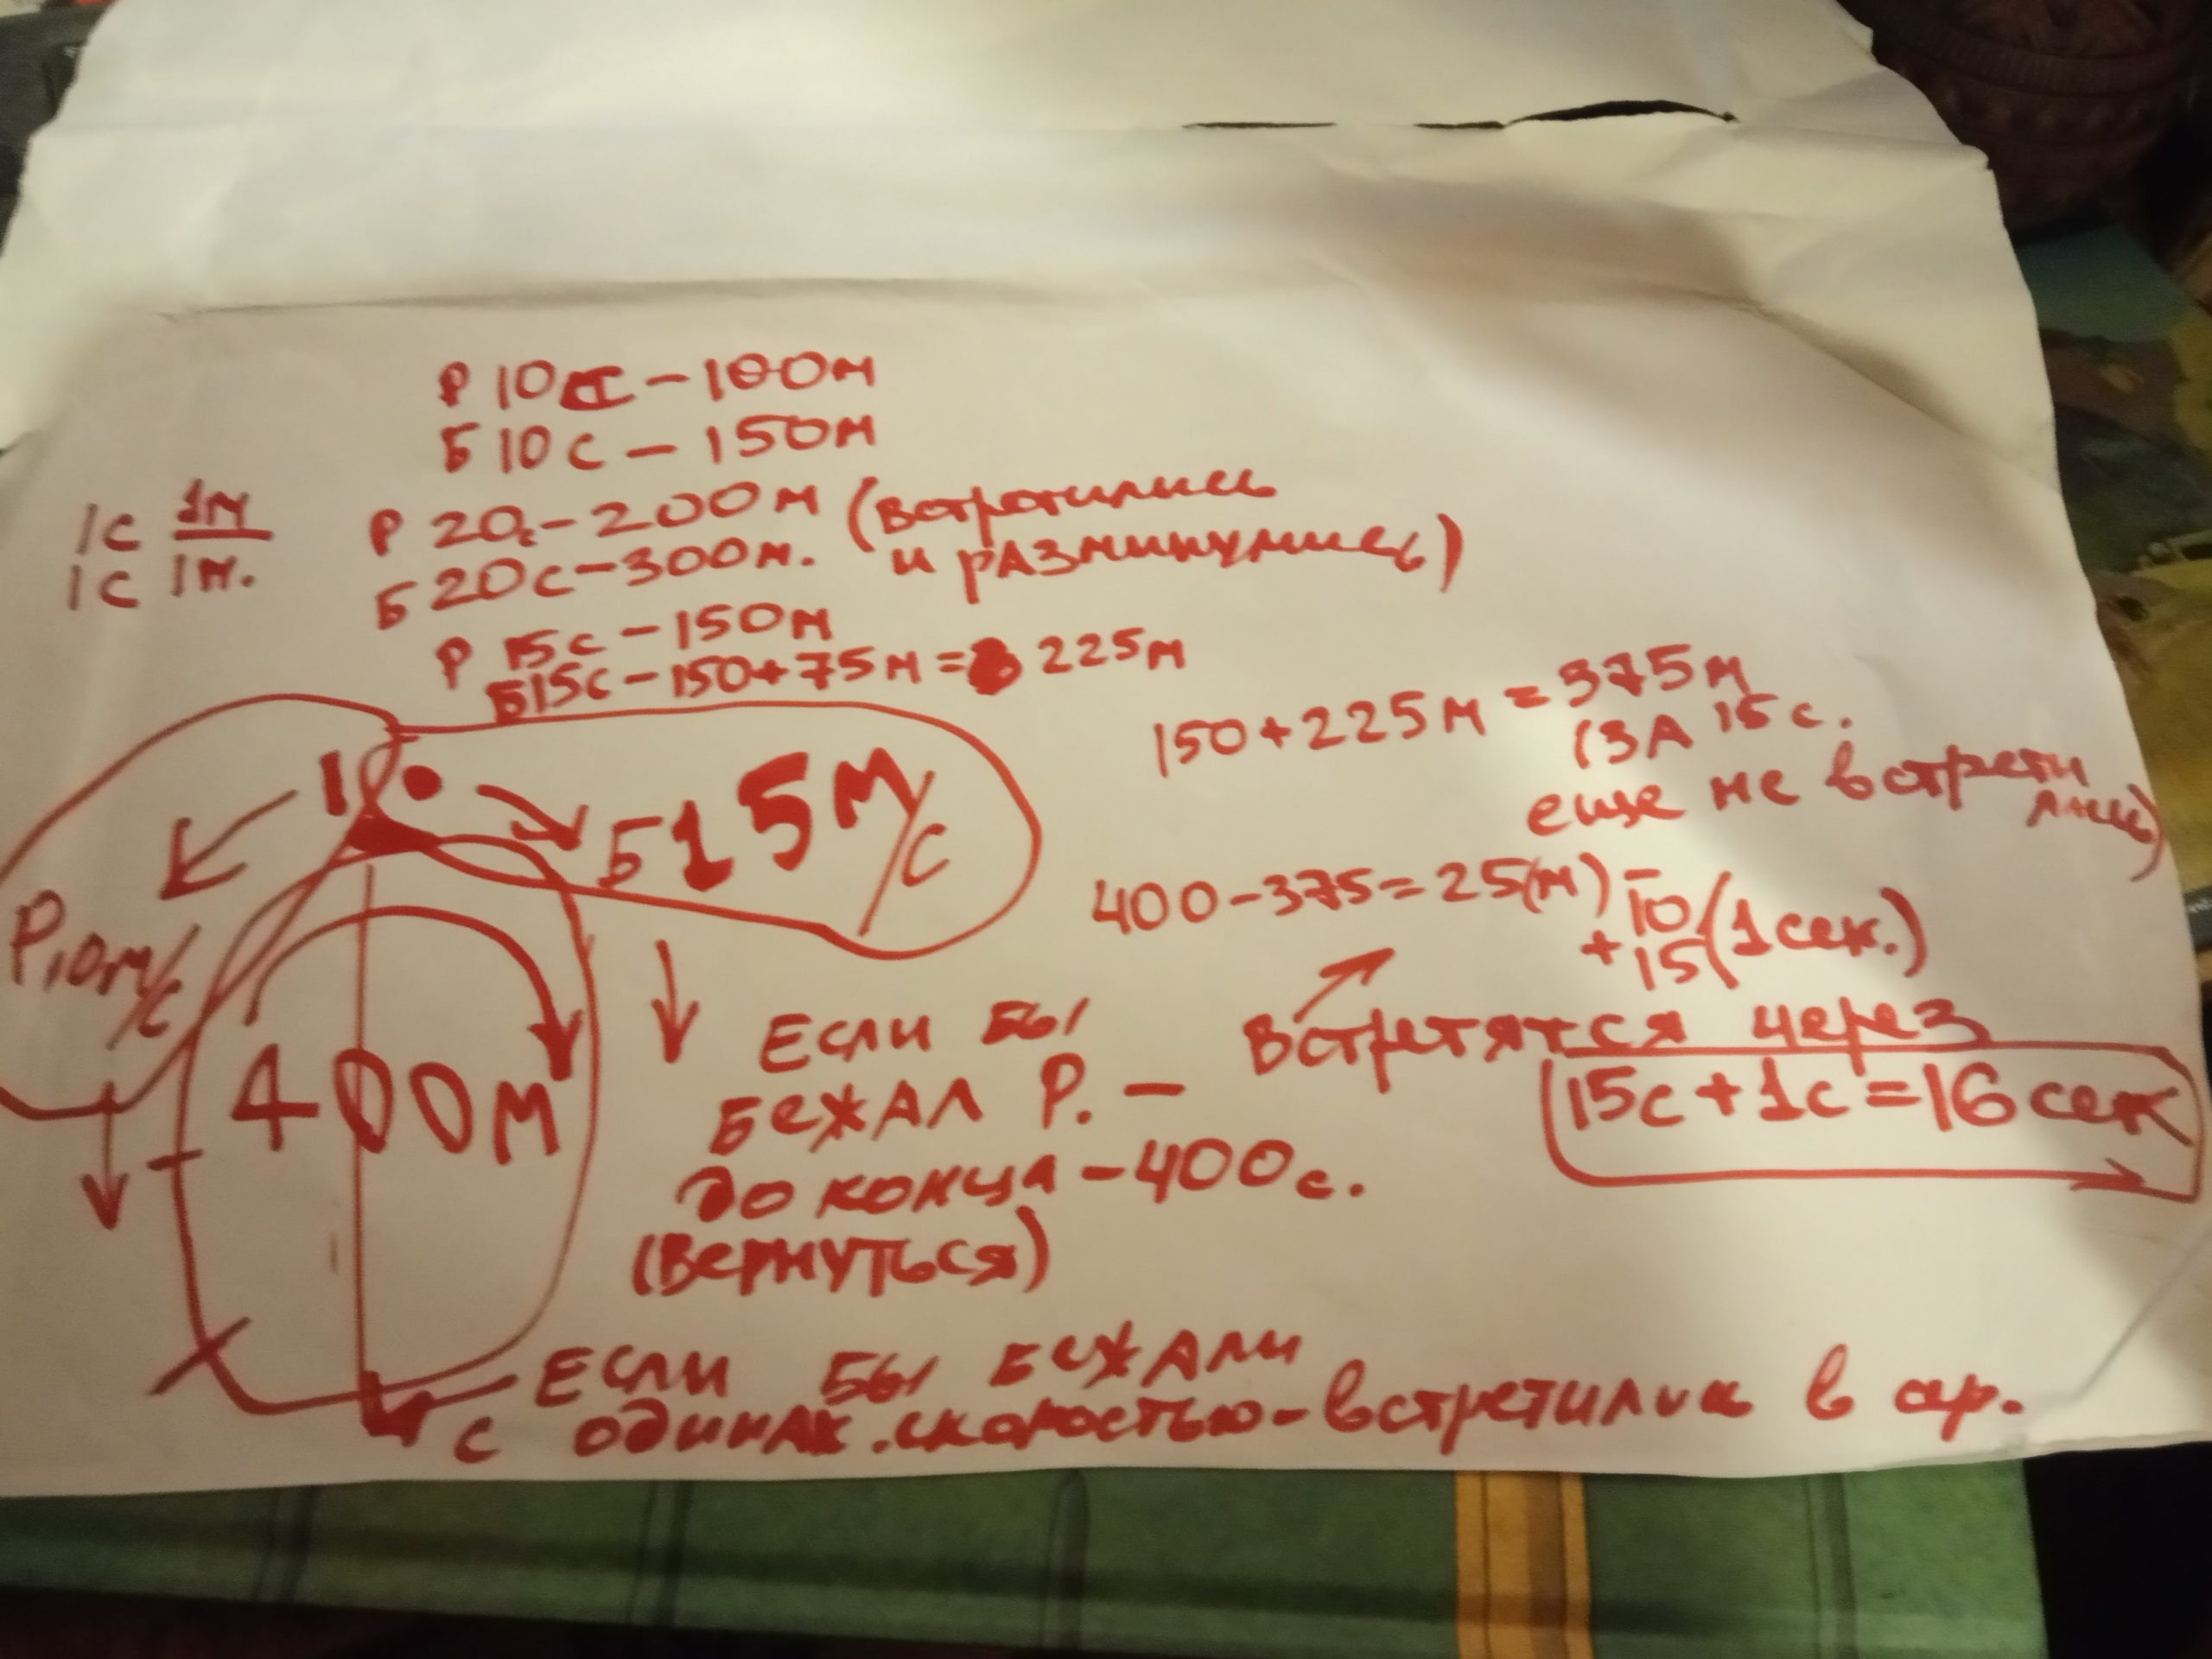 Р 10с – 100м
Б 10с – 150м
1с 1м
1с 1м.
Р 20с – 200м (встретились
Б 20с – 300м. и разминулись)
Р 15с – 150м
Б15с – 150+75м = 225м
150+225м = 375м
(ЗА 15с.
еще не встрети
лись)
Б 15м/с
Р 10м/с
400м
400-375=25(м) – 10 (1 сек.)
+ 15
Встретятся через
15с+1с=16 сек
Если бы
бежал Р. –
до конца – 400с.
(вернуться)
Если бы бежали
с одинак. скоростью – встретились в ср.